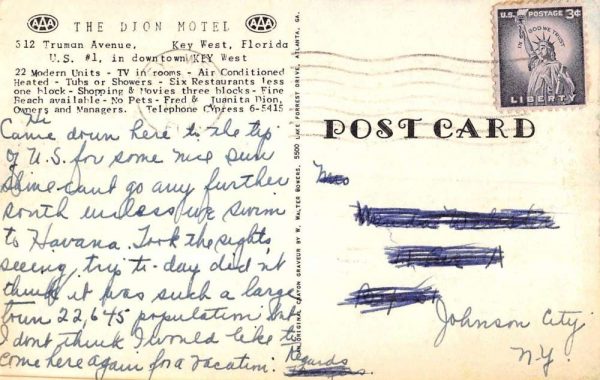 AAA THE DION MOTEL AAA
312 Truman Avenue, Key West, Florida
U.S. #1, in downtown KEY West
22 Modern Units - TV in rooms - Air Conditioned
Heated - Tubs or Showers - Six Restaurants less
one block - Shopping & Movies three blocks - Fine
Beach available - No Pets - Fred & Juanita Dion,
Owners and Managers. Telephone Cypress 6-5415
Hi
Came down here to the tip
of U.S. for some nice sun
shine - cant go any further
south unless we swim
to Havana. Took the sights
seeing trip to-day did n't
think it was such a large
town 22,645 population but
I dont think I would like to
come here again for a vacation.
Regards
AN ORIGINAL CRAYON GRAVEUR BY W. WALTER BOWERS, 5500 LAKE FORREST DRIVE, ATLANTA, GA.
U.S. POSTAGE 3¢
IN GOD WE TRUST
LIBERTY
POST CARD
Johnson City
N.Y.